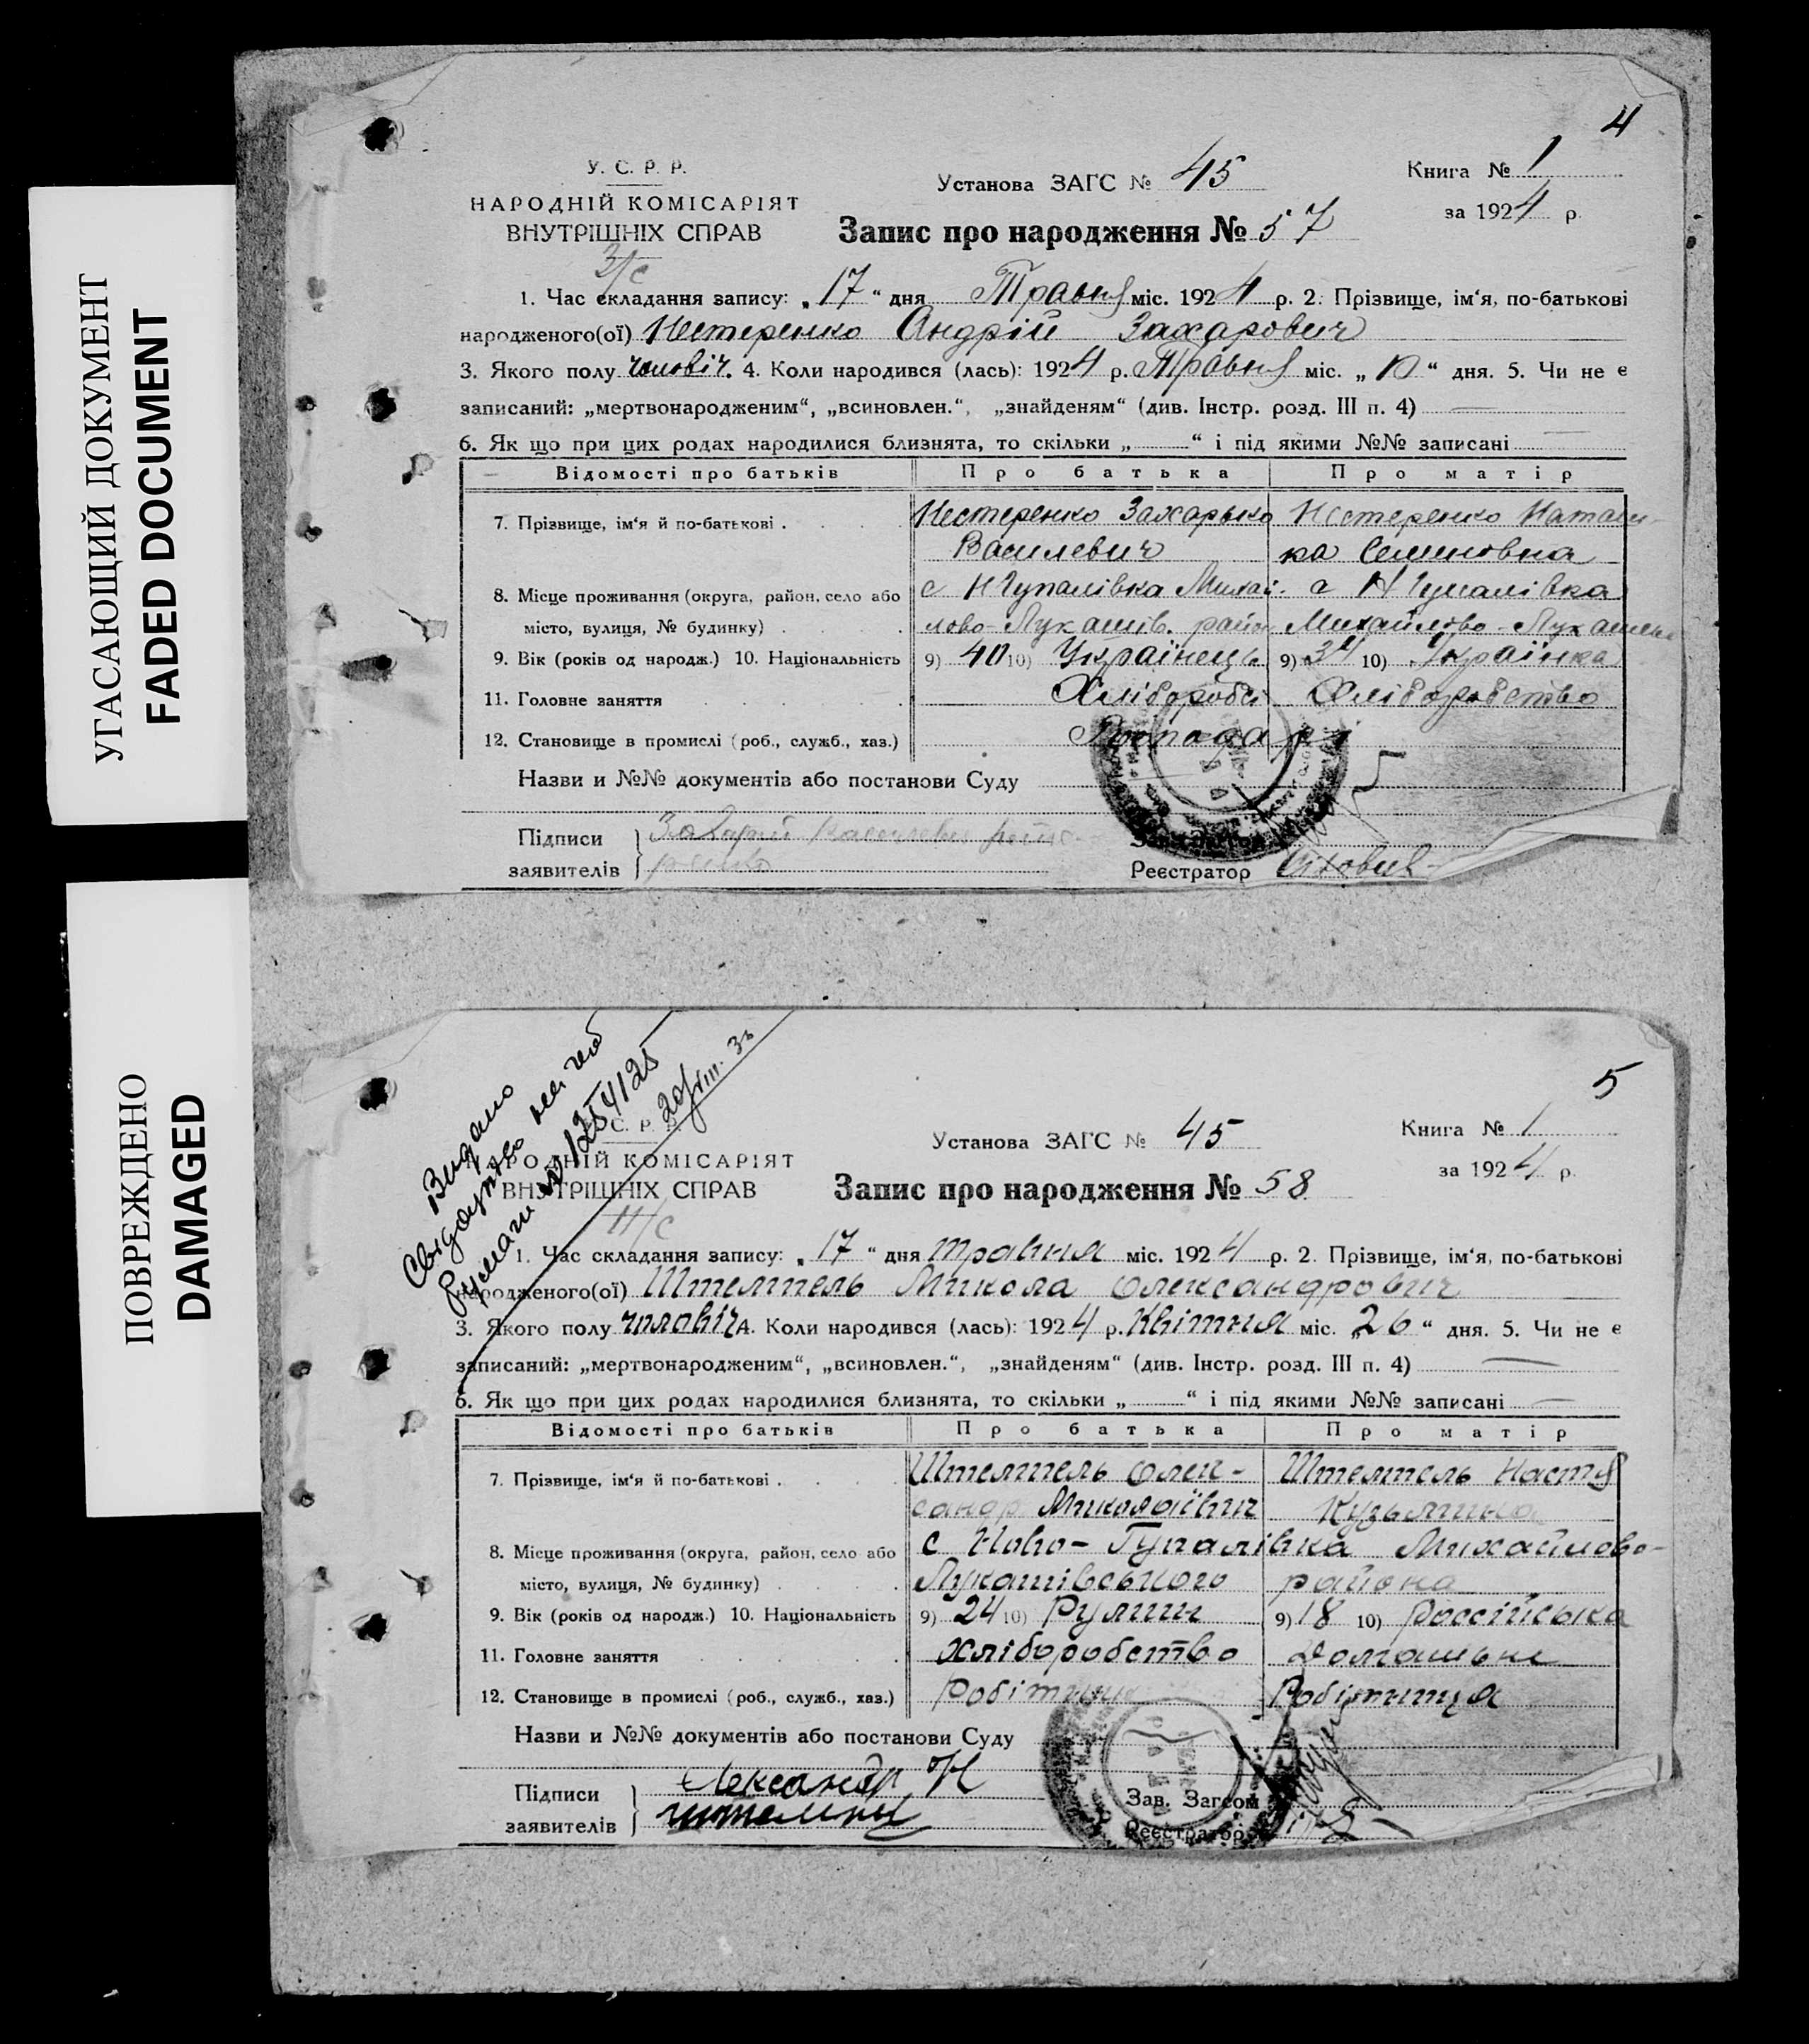 УГАСАЮЩИЙ ДОКУМЕНТ
FADED DOCUMENT
ПОВРЕЖДЕНО
DAMAGED
4
У. С. Р. Р.
НАРОДНІЙ КОМІСАРІЯТ
ВНУТРІШНІХ СПРАВ
3/с
Установа ЗАГС № 45
Книга № 1
за 1924 р.
Запис про народження № 57
1. Час складання запису: „17“ дня Травня міс. 1924 р. 2. Прізвище, ім‘я, по-батькові
народженого(ої) Нестеренко Андрій Захарович
3. Якого полу чоловіч. 4. Коли народився (лась): 1924 р. Травня міс. „ “ дня. 5. Чи не є
записаний: „мертвонародженим“, „всиновлен.“, „знайденям“ (див. Інстр. розд. III п. 4)
6. Як що при цих родах народилися близнята, то скільки „ “ і під якими №№ записані
Відомості про батьків Про батька Про матір
7. Прізвище, ім‘я й по-батькові . Нестеренко Захарько Нестеренко Натал
Василевич ка Семиновна
8. Місце проживання (округа, район, село або с Н Гупалівка Михай- с Н Гупалівка
місто, вулиця, № будинку) лово-Лукашів. район Михайлово-Лукашевс
9. Вік (років од народж.) 10. Національність 9) 40 10) Українець 9) 34 10) Українка
11. Головне заняття Хлібороб Хліборобство
12. Становище в промислі (роб., служб., хаз.) Господар
Назви и №№ документів або постанови Суду
Підписи Захарій Василевич Несте-
заявителів ренко
Реєстратор
5
Видано
Свідоцтво на
20/VIII.
С. Р. Р.
НАРОДНІЙ КОМІСАРІЯТ
ВНУТРІШНІХ СПРАВ
11/с
Установа ЗАГС № 45
Книга № 1
за 1924 р.
Запис про народження № 58
1. Час складання запису: „17“ дня травня міс. 1924 р. 2. Прізвище, ім‘я, по-батькові
народженого(ої) Штемпель Микола Олександрович
3. Якого полу чоловіч 4. Коли народився (лась): 1924 р. Квітня міс. „26“ дня. 5. Чи не є
записаний: „мертвонародженим“, „всиновлен.“, „знайденям“ (див. Інстр. розд. III п. 4)
6. Як що при цих родах народилися близнята, то скільки „ “ і під якими №№ записані
Відомості про батьків Про батька Про матір
7. Прізвище, ім‘я й по-батькові . Штемпель Олек- Штемпель Настя
сандр Миколаївич Кузьмина
8. Місце проживання (округа, район, село або с Ново-Гупалівка Михайлово-
місто, вулиця, № будинку) Лукашівського района
9. Вік (років од народж.) 10. Національність 9) 24 10) Румин 9) 18 10) Россійська
11. Головне заняття хліборобство Домашнє
12. Становище в промислі (роб., служб., хаз.) Робітник Робітниця
Назви и №№ документів або постанови Суду
Підписи Александр Н
заявителів
Зав. Загсом
Реєстратор